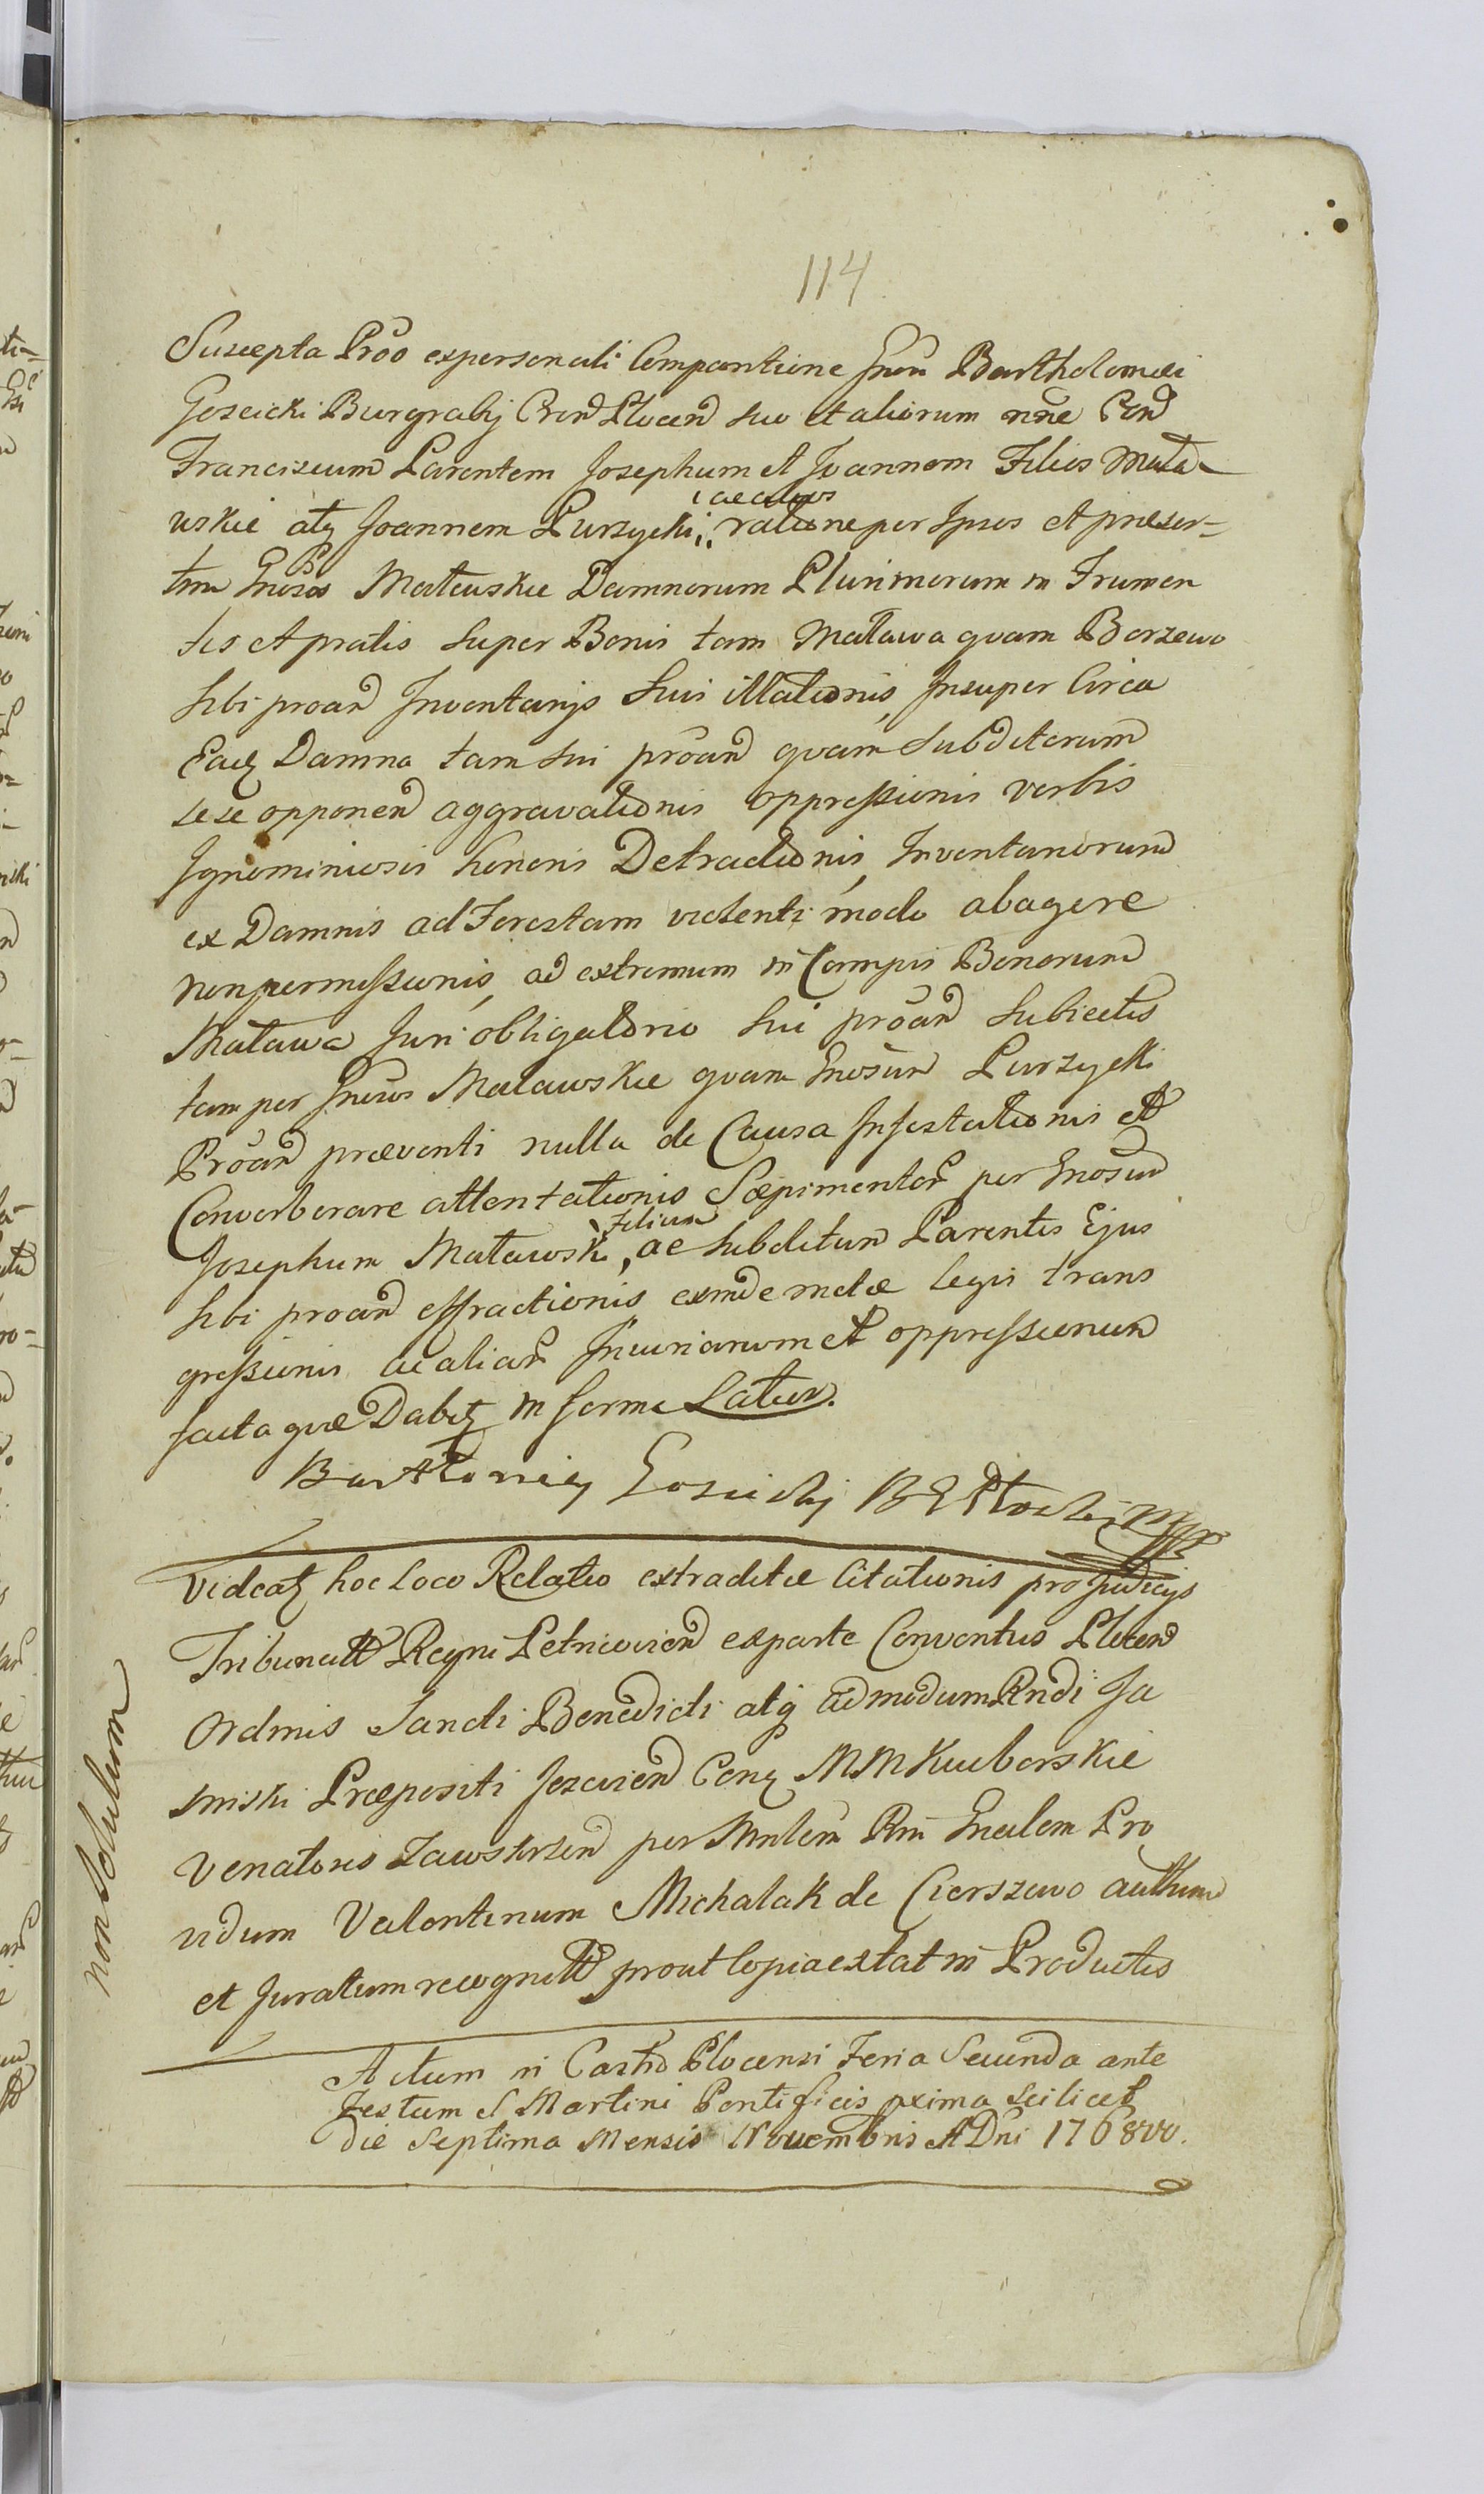 114
Suscepta Prõo ex personali Comparitione Gnõsi Bartholomei
Gozicki Burgrabij Cren̄ Plocen̄ suo et aliorum nñe Con̄
Franciscum Parentem Josephum et Joannem Filios Mała-
wskie atq Joannem Purzycki ac alios ratione per Ipsos et præser-
tim Gnosos Maławskie Damnorum Plurimorum in Frumen
tis et pratis super Bonis tam Maława quam Borzewo
sibi proan̄ Inventarijs sui illationis, Insuper Circa
Eaq Damna tam sui prõan̄ quam subditorum
sese opponen̄ aggravationis oppressionis verbis
Ignominiosis honoris Detractionis, Inventariorum
ex Damnis ad Forestam violenti modo abagere
non permissionis, ad extremum in Campis Bonorum
Maława Juri obligatorio sui prõan̄ subiectis
tam per Gnosos Maławskie quam Gnosum Purzycki
Prõan̄ præventi nulla de Causa Infestationis et
Converberare attentationis Sæpimentor̃ per Gnosum
Josephum Maławski Filium, ac subditum Parentis Ejus
sibi proan̄ effractionis exinde metæ legis trans
gressionis ac aliar̃ Injuriarum et oppressionum
facta quæ Dabit̃ in forma Latior.
Bartłomiey Gosicki B G Płocki mpp
Videat̃ hoc loco Relatio extraditæ Citationis pro Judicijs
Tribunalt̃ Regni Petricovien̄ ex parte Conventus Plocen̄
Ordinis Sancti Benedicti atq admodum Rndi Ja
sinski Præpositi Jezovien̄ Con̄ MM Kuborskie
Venatoris Zawskrzen̄ per Mnlem Rni Gnalem Pro
vidum Valentinum Michalak de Cierszewo authum
et Juratum recognitt̃ prout Copia extat in Productis
non solutum
Actum in Castro Plocensi Feria Secunda ante
Festum S Martini Pontificis pxima scilicet
die Septima Mensis Novembris A Dni 1768vo.